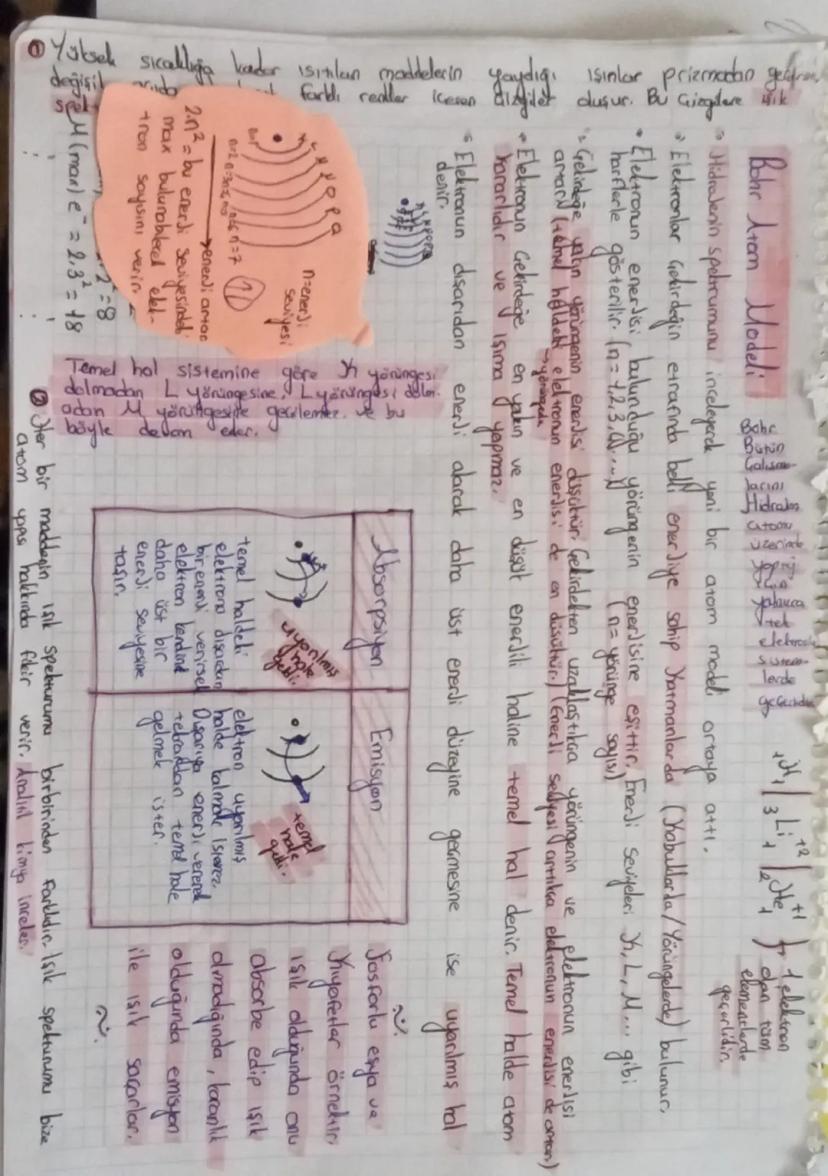 Bohr Atom Modeli
Bohr
Bütün
Çalışma-
larını
Hidrojen
atomu
üzerinde
yalnızca
tek
elektronlu
sistem-
lerde
geçerlidir
₁H₁ / ₃Li₁⁺² / ₂He₁⁺¹ } → 1 elektron
olan tüm
elementlerde
geçerlidir.
Hidrojenin spektrumunu inceleyerek yeni bir atom modeli ortaya attı.
Elektronlar Çekirdeğin etrafında belli enerjiye sahip katmanlarda (kabuklarda/yörüngelerde) bulunur.
Elektronun enerjisi bulunduğu yörüngenin enerjisine eşittir. Enerji seviyeleri K, L, M... gibi
harflerle gösterilir. (n = 1,2,3,4...) (n = yörünge sayısı)
Çekirdeğe yakın yörüngenin enerjisi düşüktür. Çekirdekten uzaklaştıkça yörüngenin ve elektronun enerjisi
artar. (temel haldeki elektronun enerjisi de en düşüktür.) Enerji seviyesi arttıkça elektronun enerjisi de artar)
→yörüngede
Elektronun Çekirdeğe en yakın ve en düşük enerjili haline temel hal denir. Temel halde atom
kararlıdır ve ışıma yapmaz.
Elektronun dışarıdan enerji alarak daha üst enerji düzeyine geçmesine ise uyarılmış hal
denir.
Absorpsiyon
uyarılmış
hale
geldi.
temel haldeki
elektrona dışarıdan
bir enerji verirsek
elektron kendini
daha üst bir
enerji seviyesine
taşır.
Emisyon
temel
hale
geldi.
elektron uyarılmış
halde kalmak istemez.
Dışarıya enerji vererek
tekrardan temel hale
gelmek ister.
Fosforlu eşya ve
kıyafetler örnektir,
ışık olduğunda onu
absorbe edip ışık
olmadığında, karanlık
olduğunda emisyon
ile ışık saçarlar.
K L M N O P Q
n=1 n=2 n=3 n=4 n=5 n=6 n=7
n=enerji
seviyesi
→enerji artar
2.n² = bu enerji seviyesindeki
max bulunabilecek elek-
tron sayısını verir.
2² = 8
M (max) e⁻ = 2.3² = 18
Temel hal sistemine göre K yörüngesi
dolmadan L yörüngesine, L yörüngesi dolm-
adan M yörüngesine geçilemez. ve bu
böyle devam eder.
① Yüksek sıcaklığa kadar ısıtılan maddelerin yaydığı ışınlar prizmadan
değişik farklı renkler içeren çizgiler düşer. Bu çizgilere ışık
② Her bir maddenin ışık spekturumu birbirinden farklıdır. Işık spekturumu bize
atom yapısı hakkında fikir verir. Analist kimya inceler.